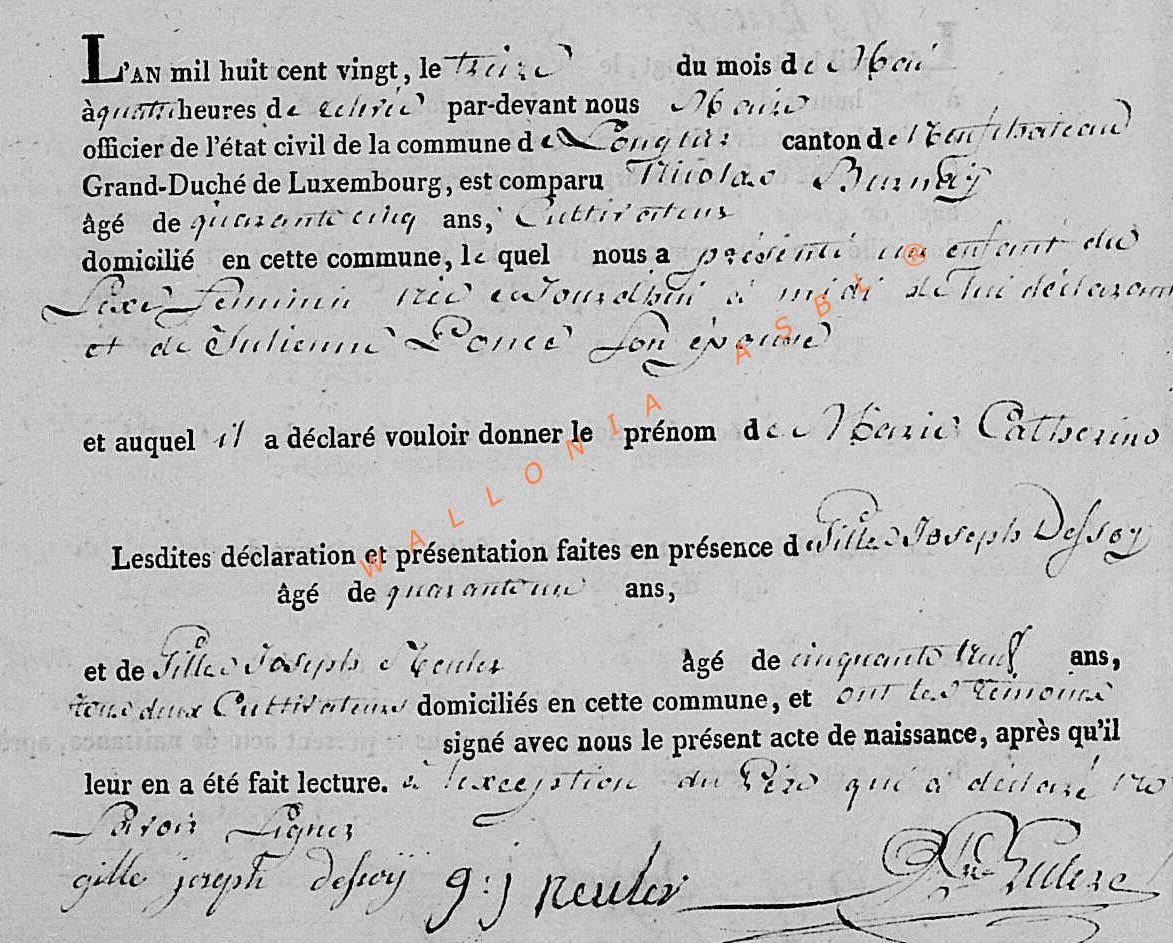 L'AN mil huit cent vingt, le treize du mois de Mai
à quatre heures de relevée par-devant nous Maire
officier de l'état civil de la commune de Longlier canton de Neufchateau
Grand-Duché de Luxembourg, est comparu Nicolas Burnay
âgé de quarante cinq ans, Cultivateur
domicilié en cette commune, le quel nous a présenté un enfant du
Sexe feminin née aujourdhui à midi de lui déclarant
et de Julienne Ponce Son épouse
et auquel il a déclaré vouloir donner le prénom de Marie Catherine
Lesdites déclaration et présentation faites en présence de Gille Joseph Dessoy
âgé de quarante un ans,
et de Gille Joseph Reuler âgé de cinquante neuf ans,
tous deux Cultivateurs domiciliés en cette commune, et ont les témoins
signé avec nous le présent acte de naissance, après qu'il
leur en a été fait lecture. à l'exception du Père qui a déclaré ne
Savoir Signer
gille joseph dessoij g : j reuler
WALLONIA ASBL ®